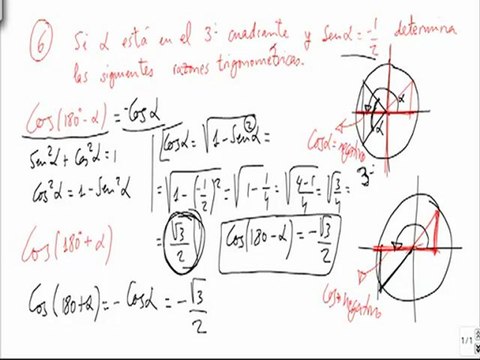 6 Si α está en el 3º cuadrante y Sen α = -1/2 determina
las siguientes razones trigonométricas.
Cos(180º - α) = -Cos α
Sen²α + Cos²α = 1
Cos²α = 1 - Sen²α
Cos α = √(1 - Sen²α) =
= √(1 - (-1/2)²) = √(1 - 1/4) = √((4-1)/4) = √(3/4) =
= √3/2
Cos(180 - α) = -√3/2
Cos(180º + α)
Cos(180 + α) = - Cos α = - √3/2
α
α
Cos α = negativo
3
Cos negativo
1/1